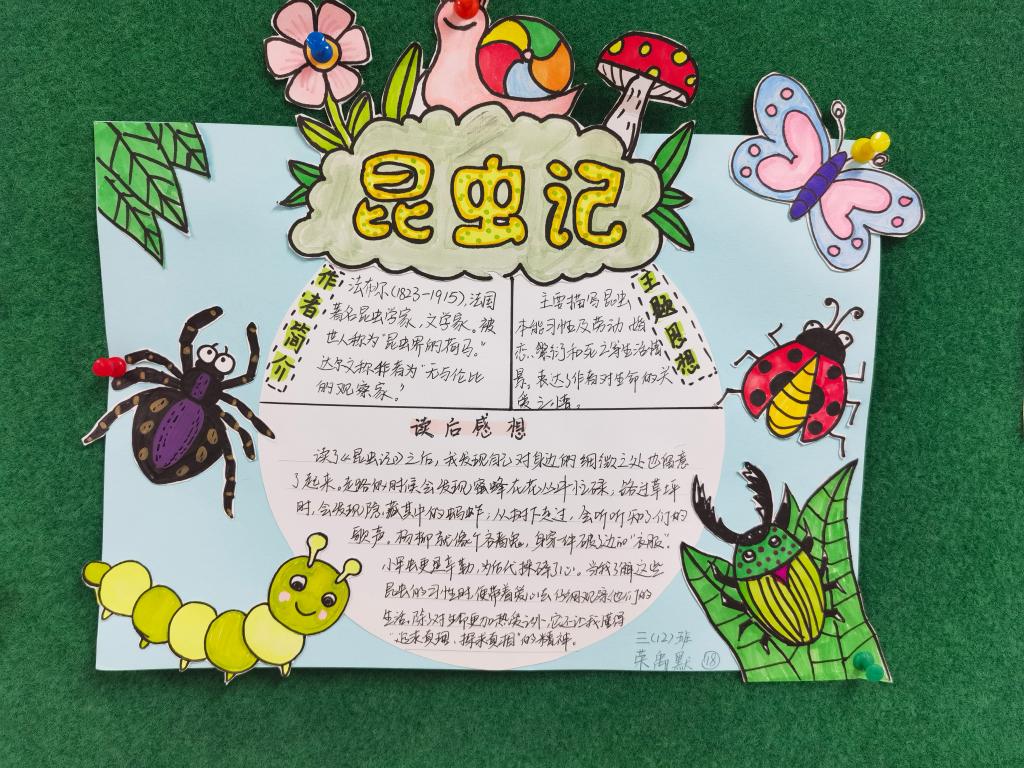 昆虫记
作者简介
法布尔(1823-1915),法国
著名昆虫学家,文学家。被
世人称为"昆虫界的荷马。"
达尔文称作者为"无与伦比
的观察家。"
主题思想
主要描写昆虫
本能习性及劳动、婚
恋、繁衍和死亡等生活情
景。表达了作者对生命的关
爱之情。
读后感想
读了《昆虫记》之后,我发现自己对身边的细微之处也留意
了起来。走路的时候会发现蜜蜂在花丛中忙碌,路过草坪
时,会发现隐藏其中的蚂蚱;从树下走过,会听听知了们的
歌声。杨柳就像个衣架,身穿件破了边的"衣服"。
小昆虫更是辛勤,为后代操碎了心。当我了解这些
昆虫的习性时,便带着爱心去仔细观察他们的
生活,除了对生命更加热爱之外,它还让我懂得
"追求真理、探求真相"的精神。
三(12)班
荣禹默 18